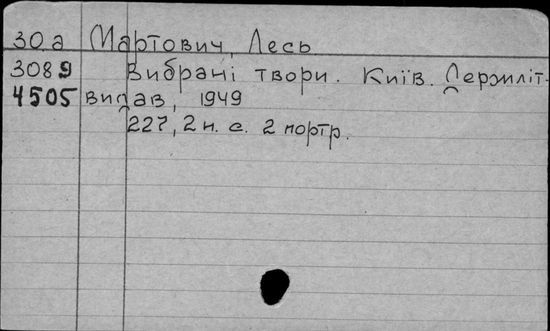 30 а Мартович, Лесь
3089 Вибрані твори. Київ. Держліт-
4505 видав, 1949
227, 2 н. с. 2 портр.